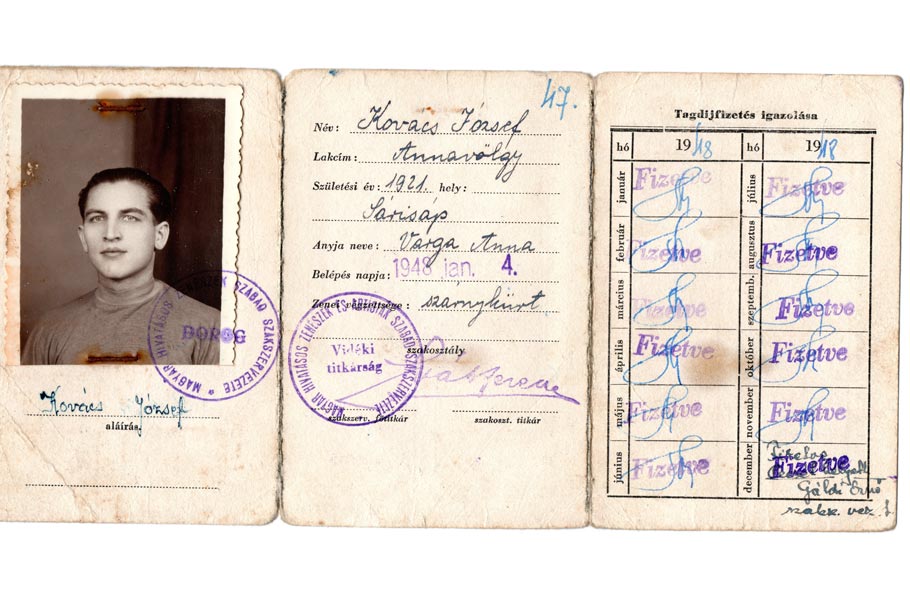 MAGYAR HIVATÁSOS ZENÉSZEK SZABAD SZAKSZERVEZETE *
DOROG
Kovács József
aláírás
47.
Név: Kovács József
Lakcím: Annavölgy
Születési év: 1921. hely:
Sárisáp
Anyja neve: Varga Anna
Belépés napja: 1948 jan. 4.
Zenei végzettsége: szárnykürt
MAGYAR HIVATÁSOS ZENÉSZEK ÉS ARTISTÁK SZABAD SZAKSZERVEZETE
Vidéki
titkárság
szakosztály
szakszerv. főtitkár
szakoszt. titkár
Tagdíjfizetés igazolása
hó 1948 hó 1948
január Fizetve július Fizetve
február Fizetve augusztus Fizetve
március Fizetve szeptemb. Fizetve
április Fizetve október Fizetve
május Fizetve november Fizetve
június Fizetve december Fizetve
Fizetve
Gáldi Ernő
szaksz. vez.